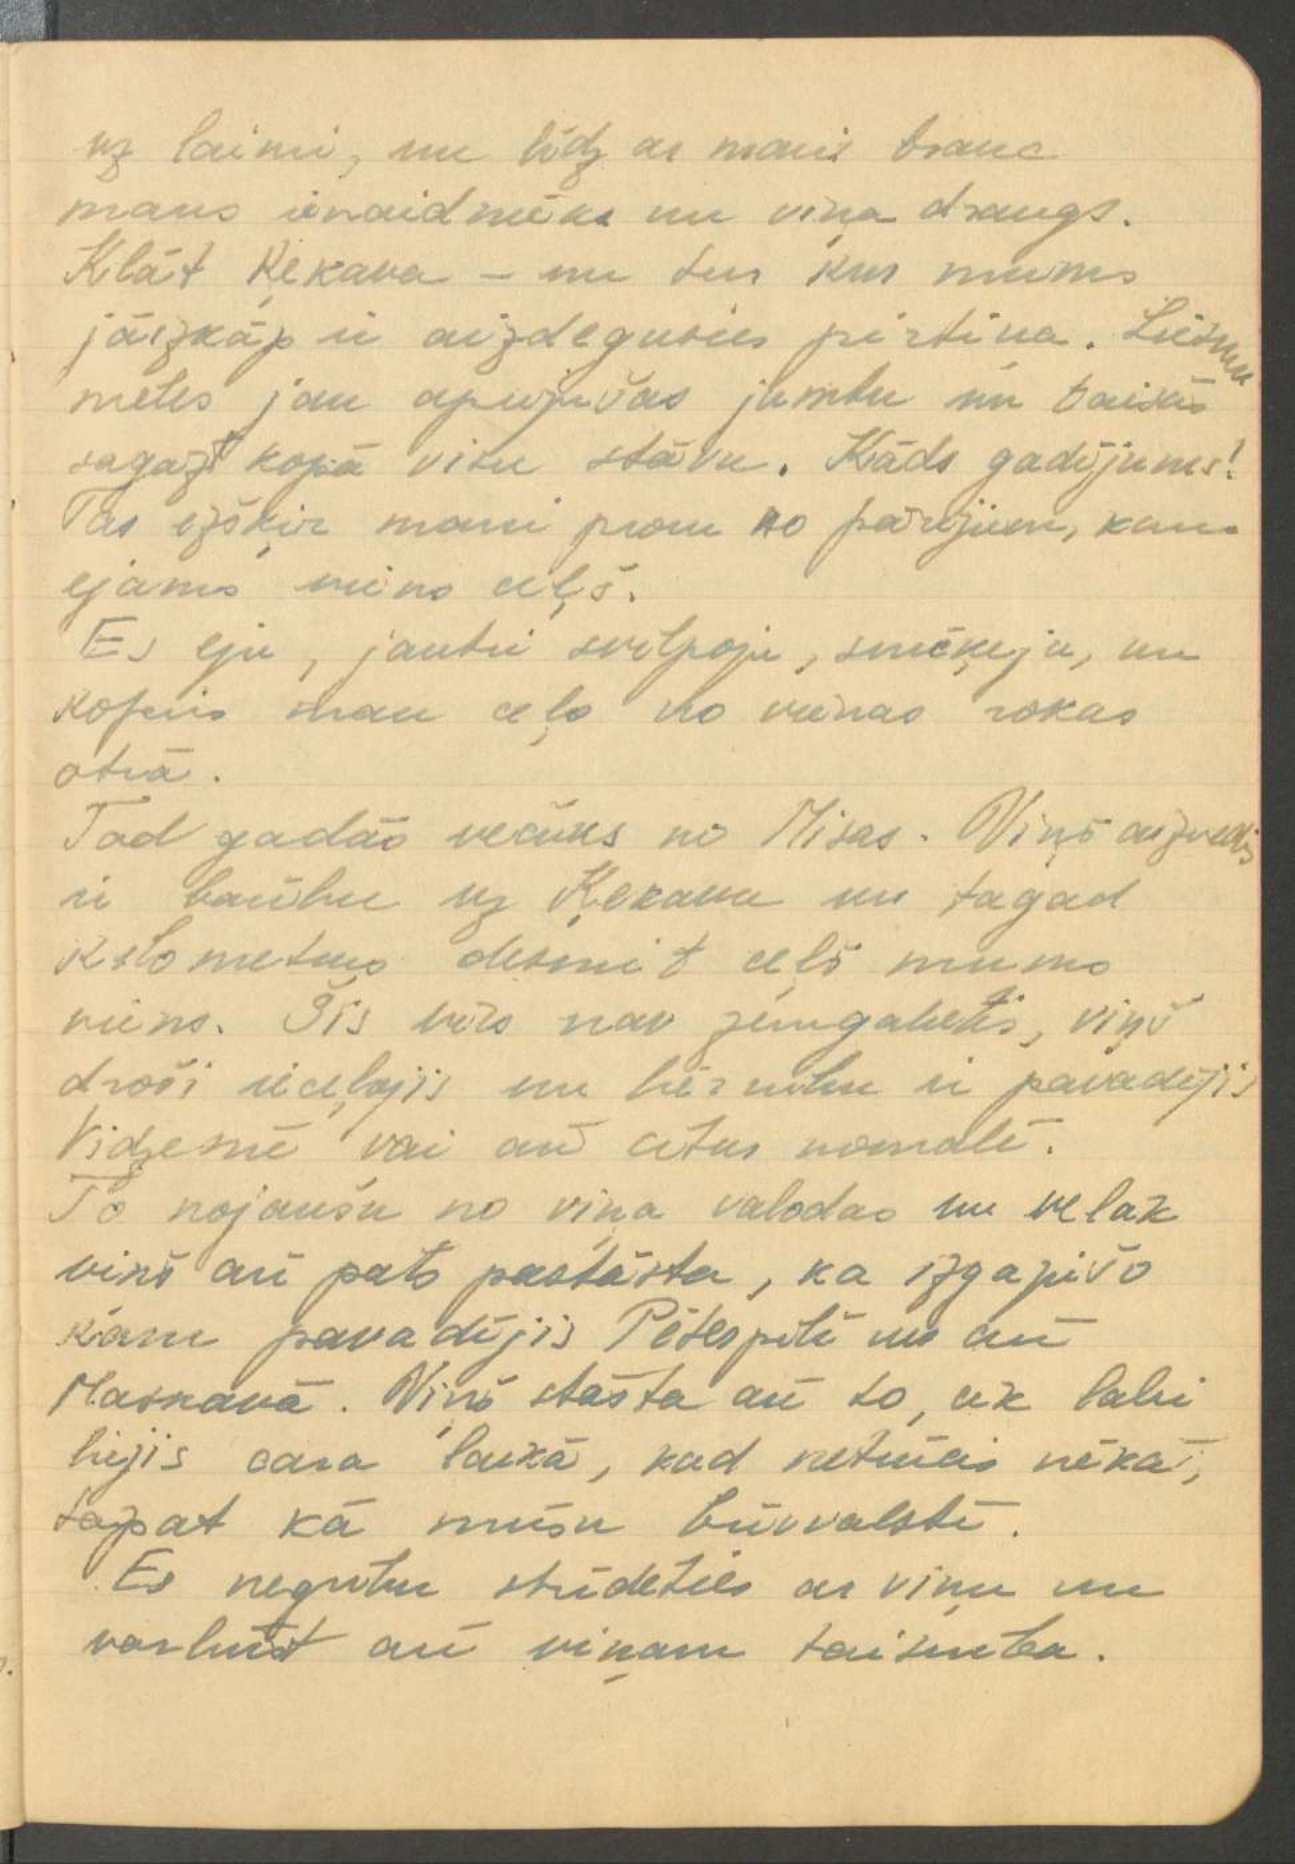 uz laimi, un līdz ar mani brauc
mans ienaidnieks un viņa draugs.
Klāt Ķekava – un tur kur mums
jāizkāp ir aizdegusies pirtiņa. Liesmu
mēles jau apvijušas jumtu un taisās
sagāzt kopā visu stāvu. Kāds gadījums!
Tas izšķir mani prom no pārējiem, kam
ejams viens ceļš.
Es eju, jautri svilpoju, smēķēju, un
koferis man ceļo no vienas rokas
otrā.
Tad gadās večuks no Misas. Viņš aizvedis
ir bausku uz Ķekavu un tagad
kilometrus desmit ceļš mums
viens. Šis vīrs nav zemgalietis, viņš
droši ieceļojis un bērnību ir pavadījis
Vidzemē vai arī citur nomalē.
To nojaušu no viņa valodas un vēlāk
viņš arī pats pastāsta, ka izgājušo
karu pavadījis Pēterpilī un arī
Maskavā. Viņš stāsta arī to, cik labi
bijis cara laikā, kad netrūcis nekā,
tāpat kā mūsu brīvvalstī.
Es negribu strīdēties ar viņu un
varbūt arī viņam taisnība.